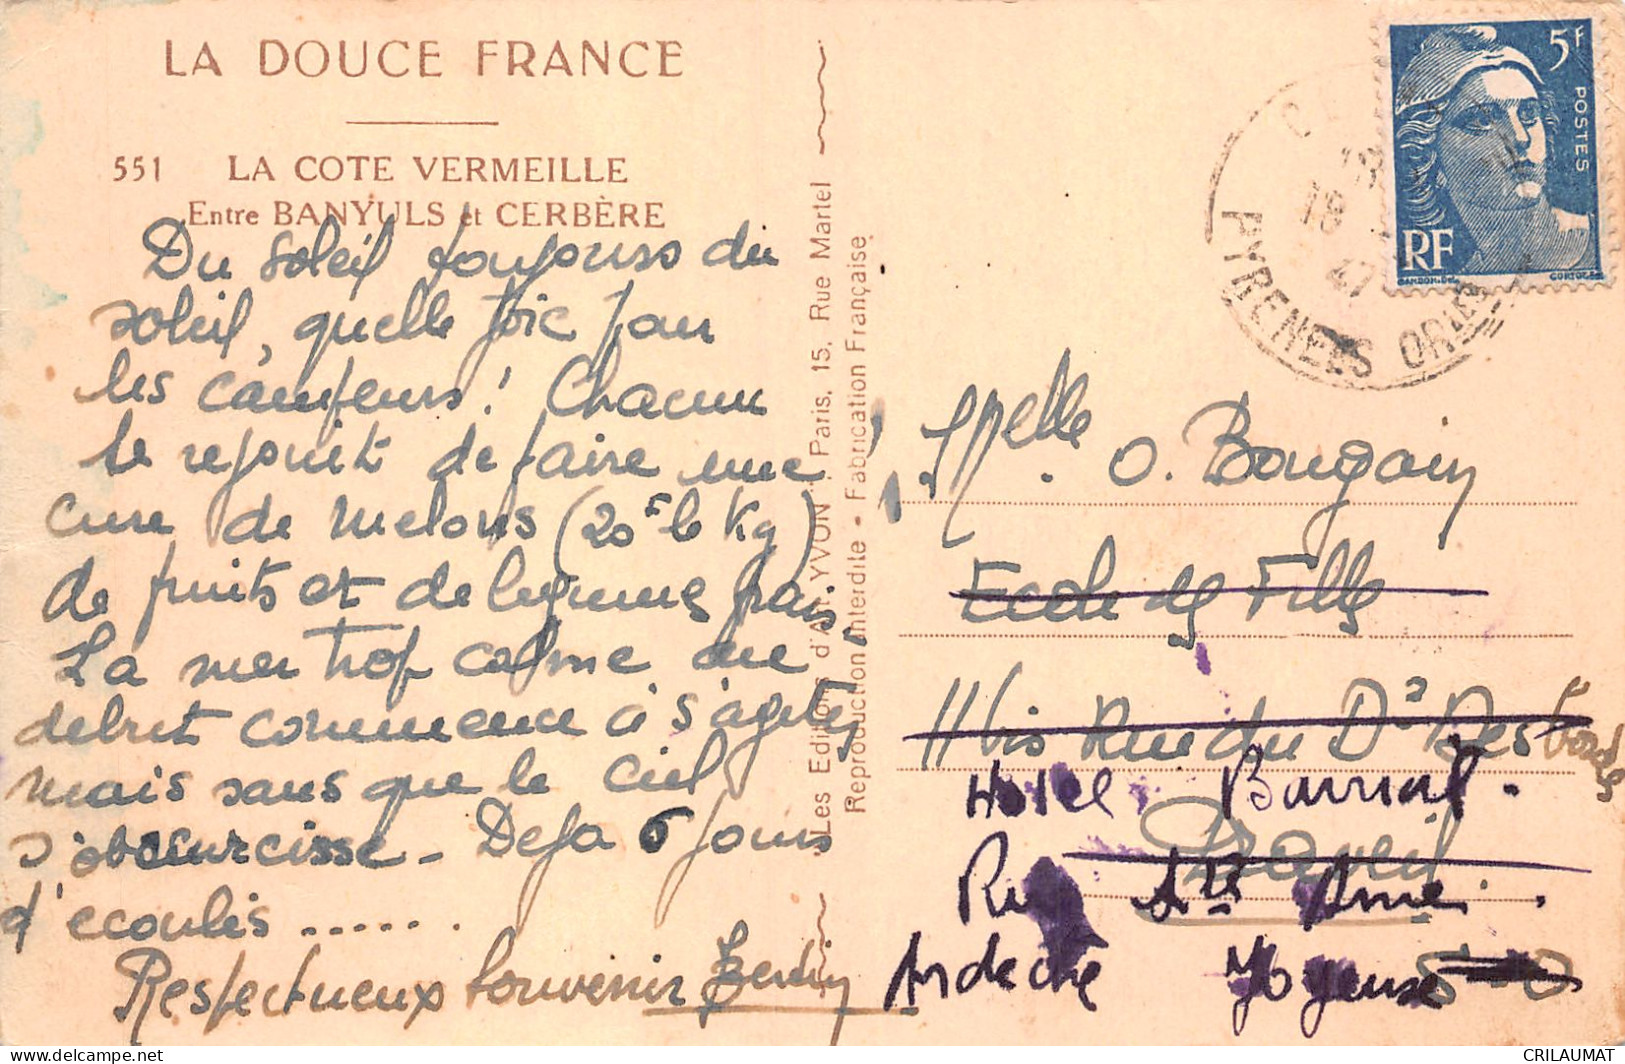 LA DOUCE FRANCE
551 LA COTE VERMEILLE
Entre BANYULS et CERBÈRE
Du soleil toujours du
soleil, quelle joie pour
les campeurs! Chacun
se rejouit de faire une
cure de melons (20F le Kg)
de fruits et de legumes frais.
La mer trop calme au
debut commence à s'agiter
mais sans que le ciel
s'obscurcisse - Deja 6 jours
d'ecoulés ......
Respectueux Souvenir
Les Editions d'Art YVON, Paris, 15, Rue Martel
Reproduction Interdite - Fabrication Française
5F
POSTES
RF
GANDON
CORTOT
18
47
PYRENEES ORIENT
Melle O. Bougain
Ecole de Filles
11 bis Rue du Dr Desbordes
Hotel
Draveil
Rue Ste Anne.
Ardeche Joyeuse
S-O
CRILAUMAT